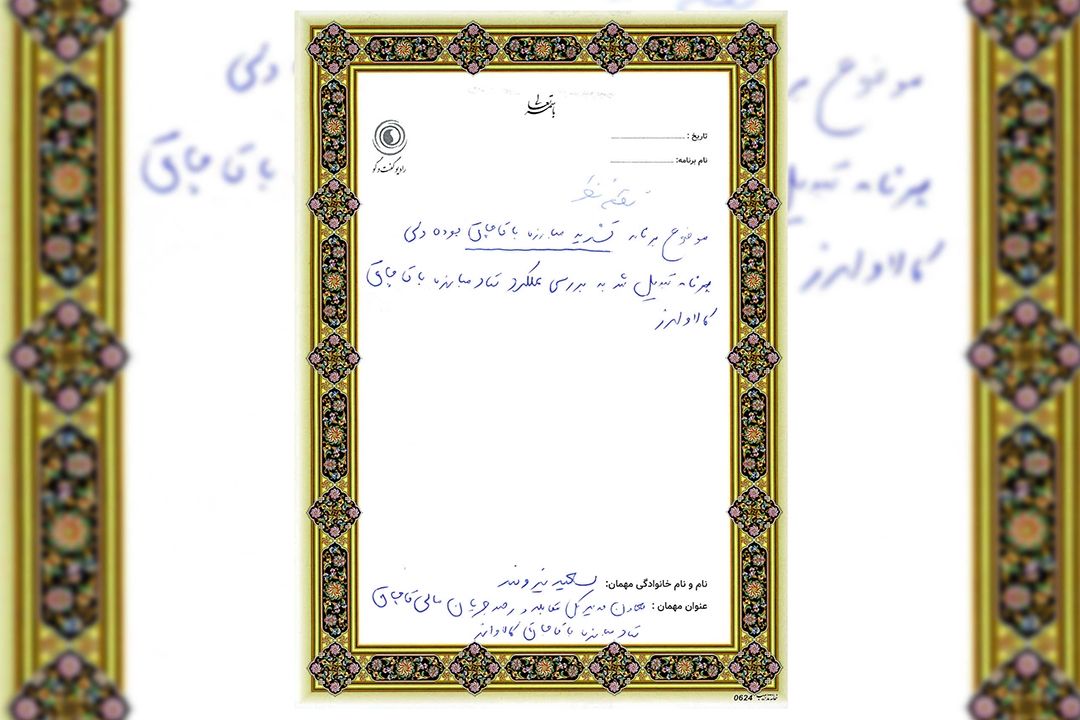 باسمه تعالی
رادیو گفت و گو
تاریخ :
نام برنامه:
نقطه نظر
موضوع برنامه تشدید مبارزه با قاچاق بوده ولی
برنامه تبدیل شد به بررسی عملکرد ستاد مبارزه با قاچاق
کالا و ارز
نام و نام خانوادگی مهمان: سعید نیرومند
عنوان مهمان : معاون مدیر کل مقابله و رصد جریان مالی قاچاق
ستاد مبارزه با قاچاق کالا و ارز
0624